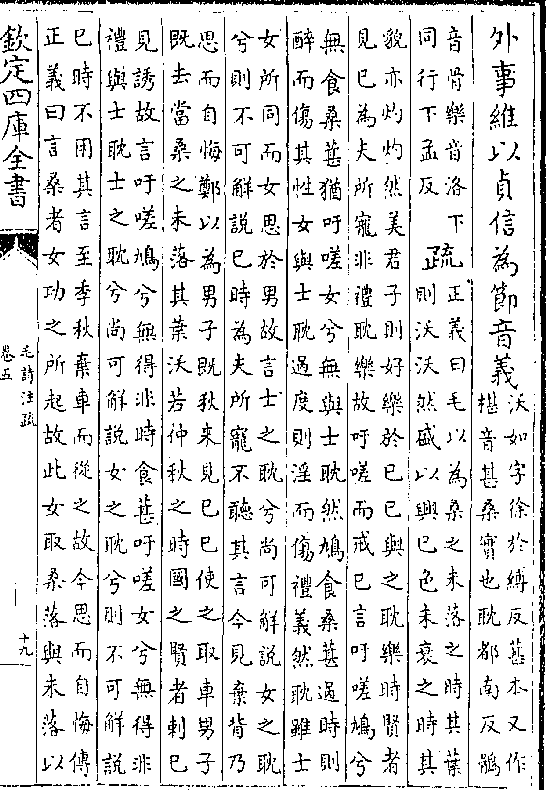 外事維以貞信為節音義
沃如字徐於縛反葚本又作
椹音甚桑實也耽都南反鶻
音骨樂音洛下
同行下孟反
疏
正義曰毛以為桑之未落之時其葉
則沃沃然盛以興已色未衰之時其
貌亦灼灼然美君子則好樂於已已與之耽樂時賢者
見已為夫所寵非禮耽樂故吁嗟而戒已言吁嗟鳩兮
無食桑葚猶吁嗟女兮無與士耽然鳩食桑葚過時則
醉而傷其性女與士耽過度則淫而傷禮義然耽雖士
女所同而女思於男故言士之耽兮尚可解說女之耽
兮則不可解說已時為夫所寵不聽其言今見棄背乃
思而自悔鄭以為男子既秋來見已已使之取車男子
既去當桑之未落其葉沃若仲秋之時國之賢者刺已
見誘故言吁嗟鳩兮無得非時食葚吁嗟女兮無得非
禮與士耽士之耽兮尚可解說女之耽兮則不可解說
已時不用其言至季秋乘車而從之故今思而自悔傳
正義曰言桑者女功之所起故此女取桑落與未落以
欽定四庫全書
毛詩注疏
卷五
十九